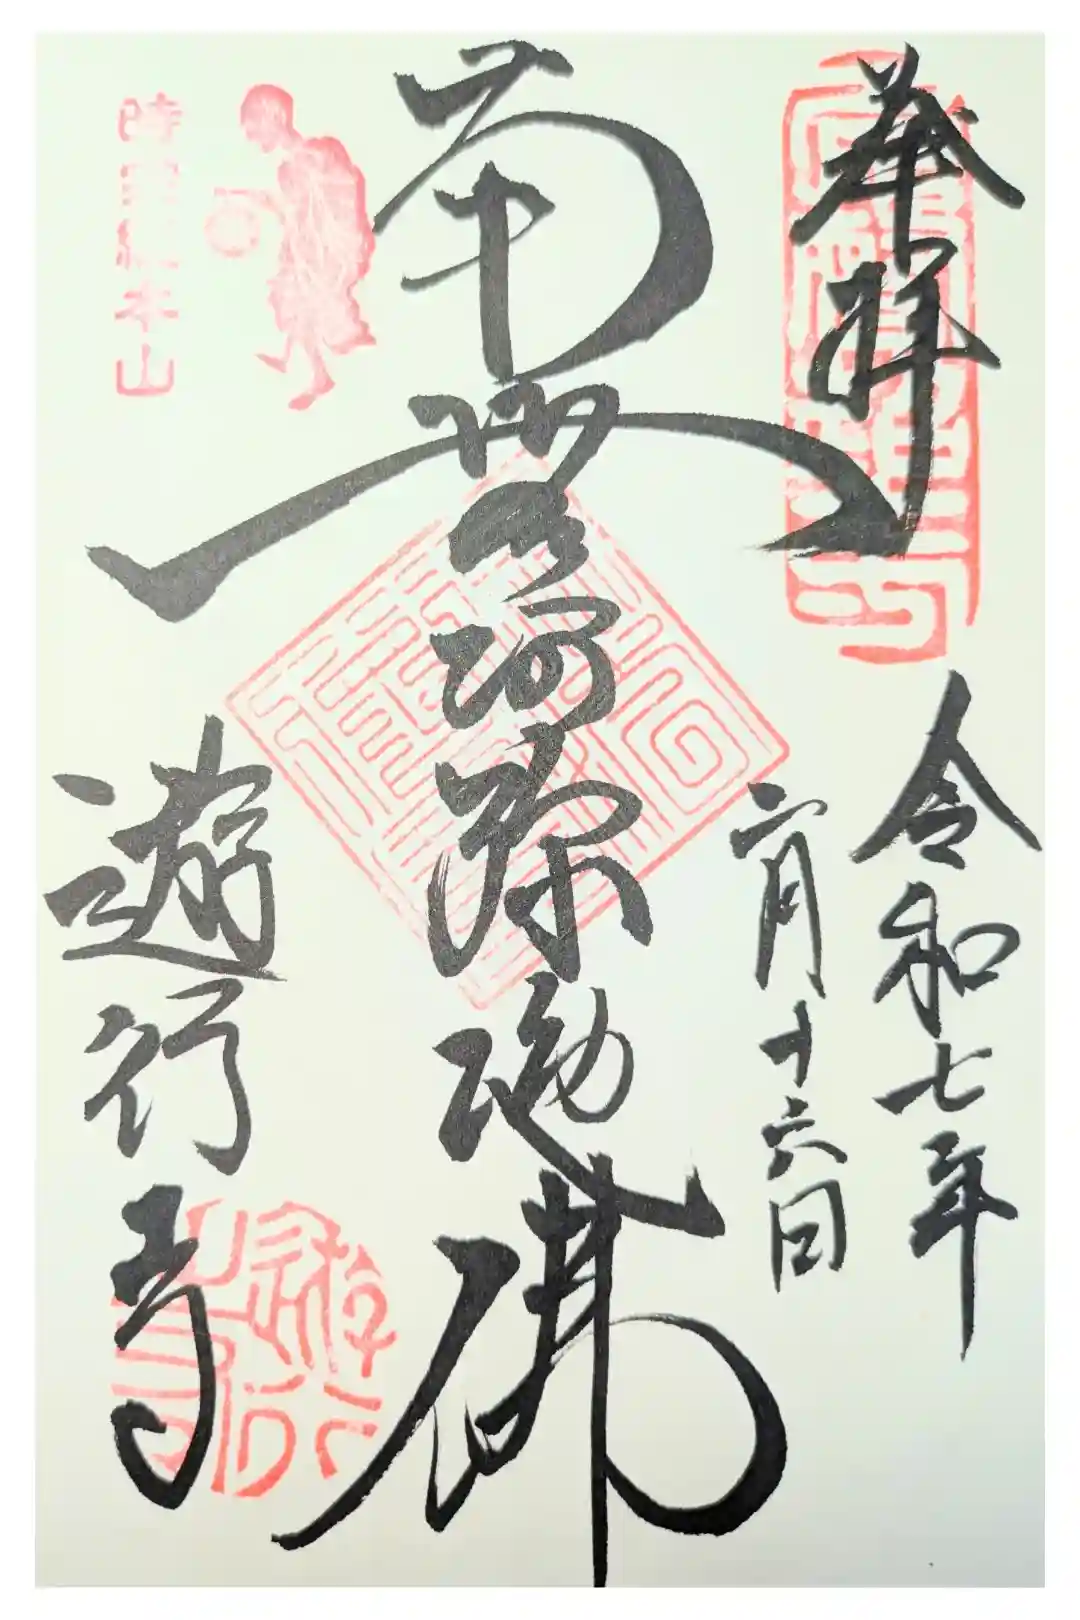 奉拝
令和七年
二月十六日
南無阿弥陀佛
遊行寺
時宗総本山